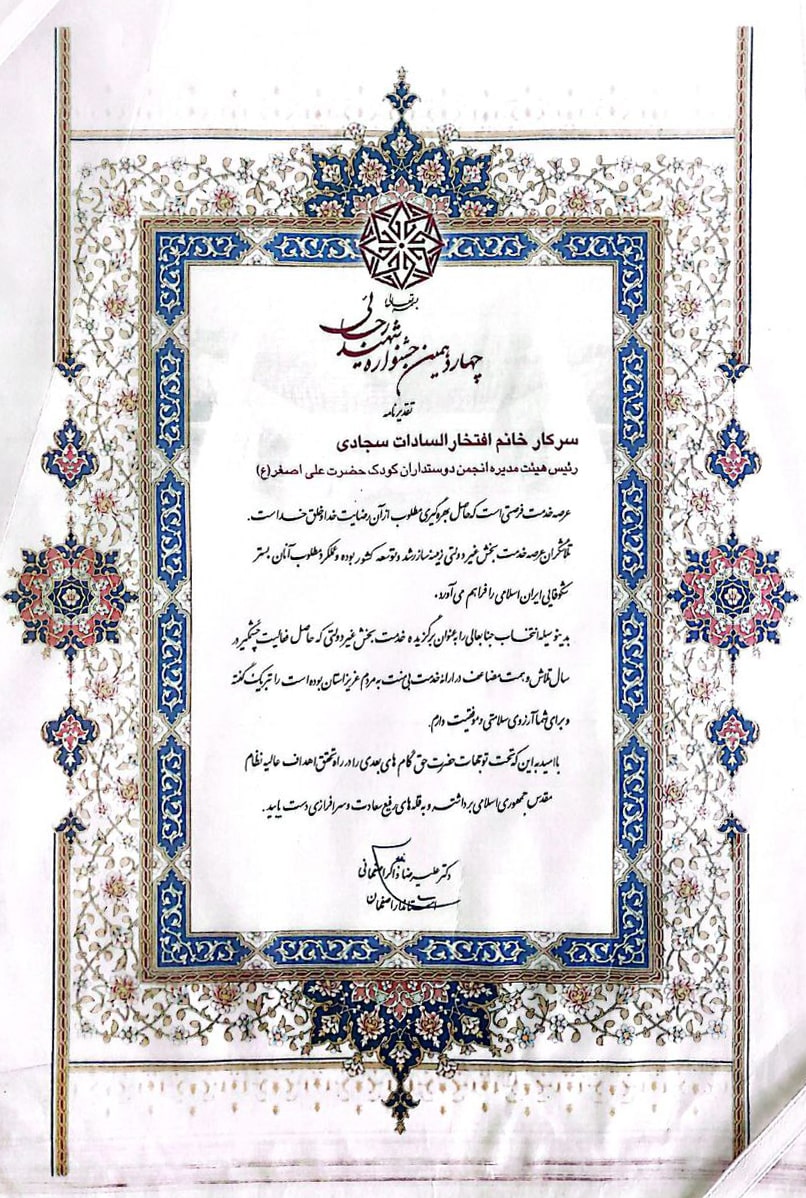 بسمه تعالی
چهاردهمین جشنواره شهید رجائی
تقدیرنامه
سرکار خانم افتخار السادات سجادی
رئیس هیئت مدیره انجمن دوستداران کودک حضرت علی اصغر(ع)
عرصه خدمت فرصتی است که حاصل بهره‌گیری مطلوب از آن رضایت خدا و خلق خداست.
تلاشگران عرصه خدمت بخش غیر دولتی زمینه ساز رشد و توسعه کشور بوده و عملکرد مطلوب آنان بستر
شکوفایی ایران اسلامی را فراهم می‌آورد.
بدینوسیله انتخاب جنابعالی را به عنوان برگزیده خدمت بخش غیر دولتی که حاصل فعالیت چشمگیر در
سال تلاش و همت مضاعف در ارائه خدمت بی منت به مردم عزیز استان بوده است را تبریک گفته
و برای شما آرزوی سلامتی و موفقیت دارم.
با امید به این که تحت توجهات حضرت حق گام های بعدی را در راه تحقق اهداف عالیه نظام
مقدس جمهوری اسلامی برداشته و به قله های رفیع سعادت و سرافرازی دست یابید.
دکتر علیرضا ذاکر اصفهانی
استاندار اصفهان